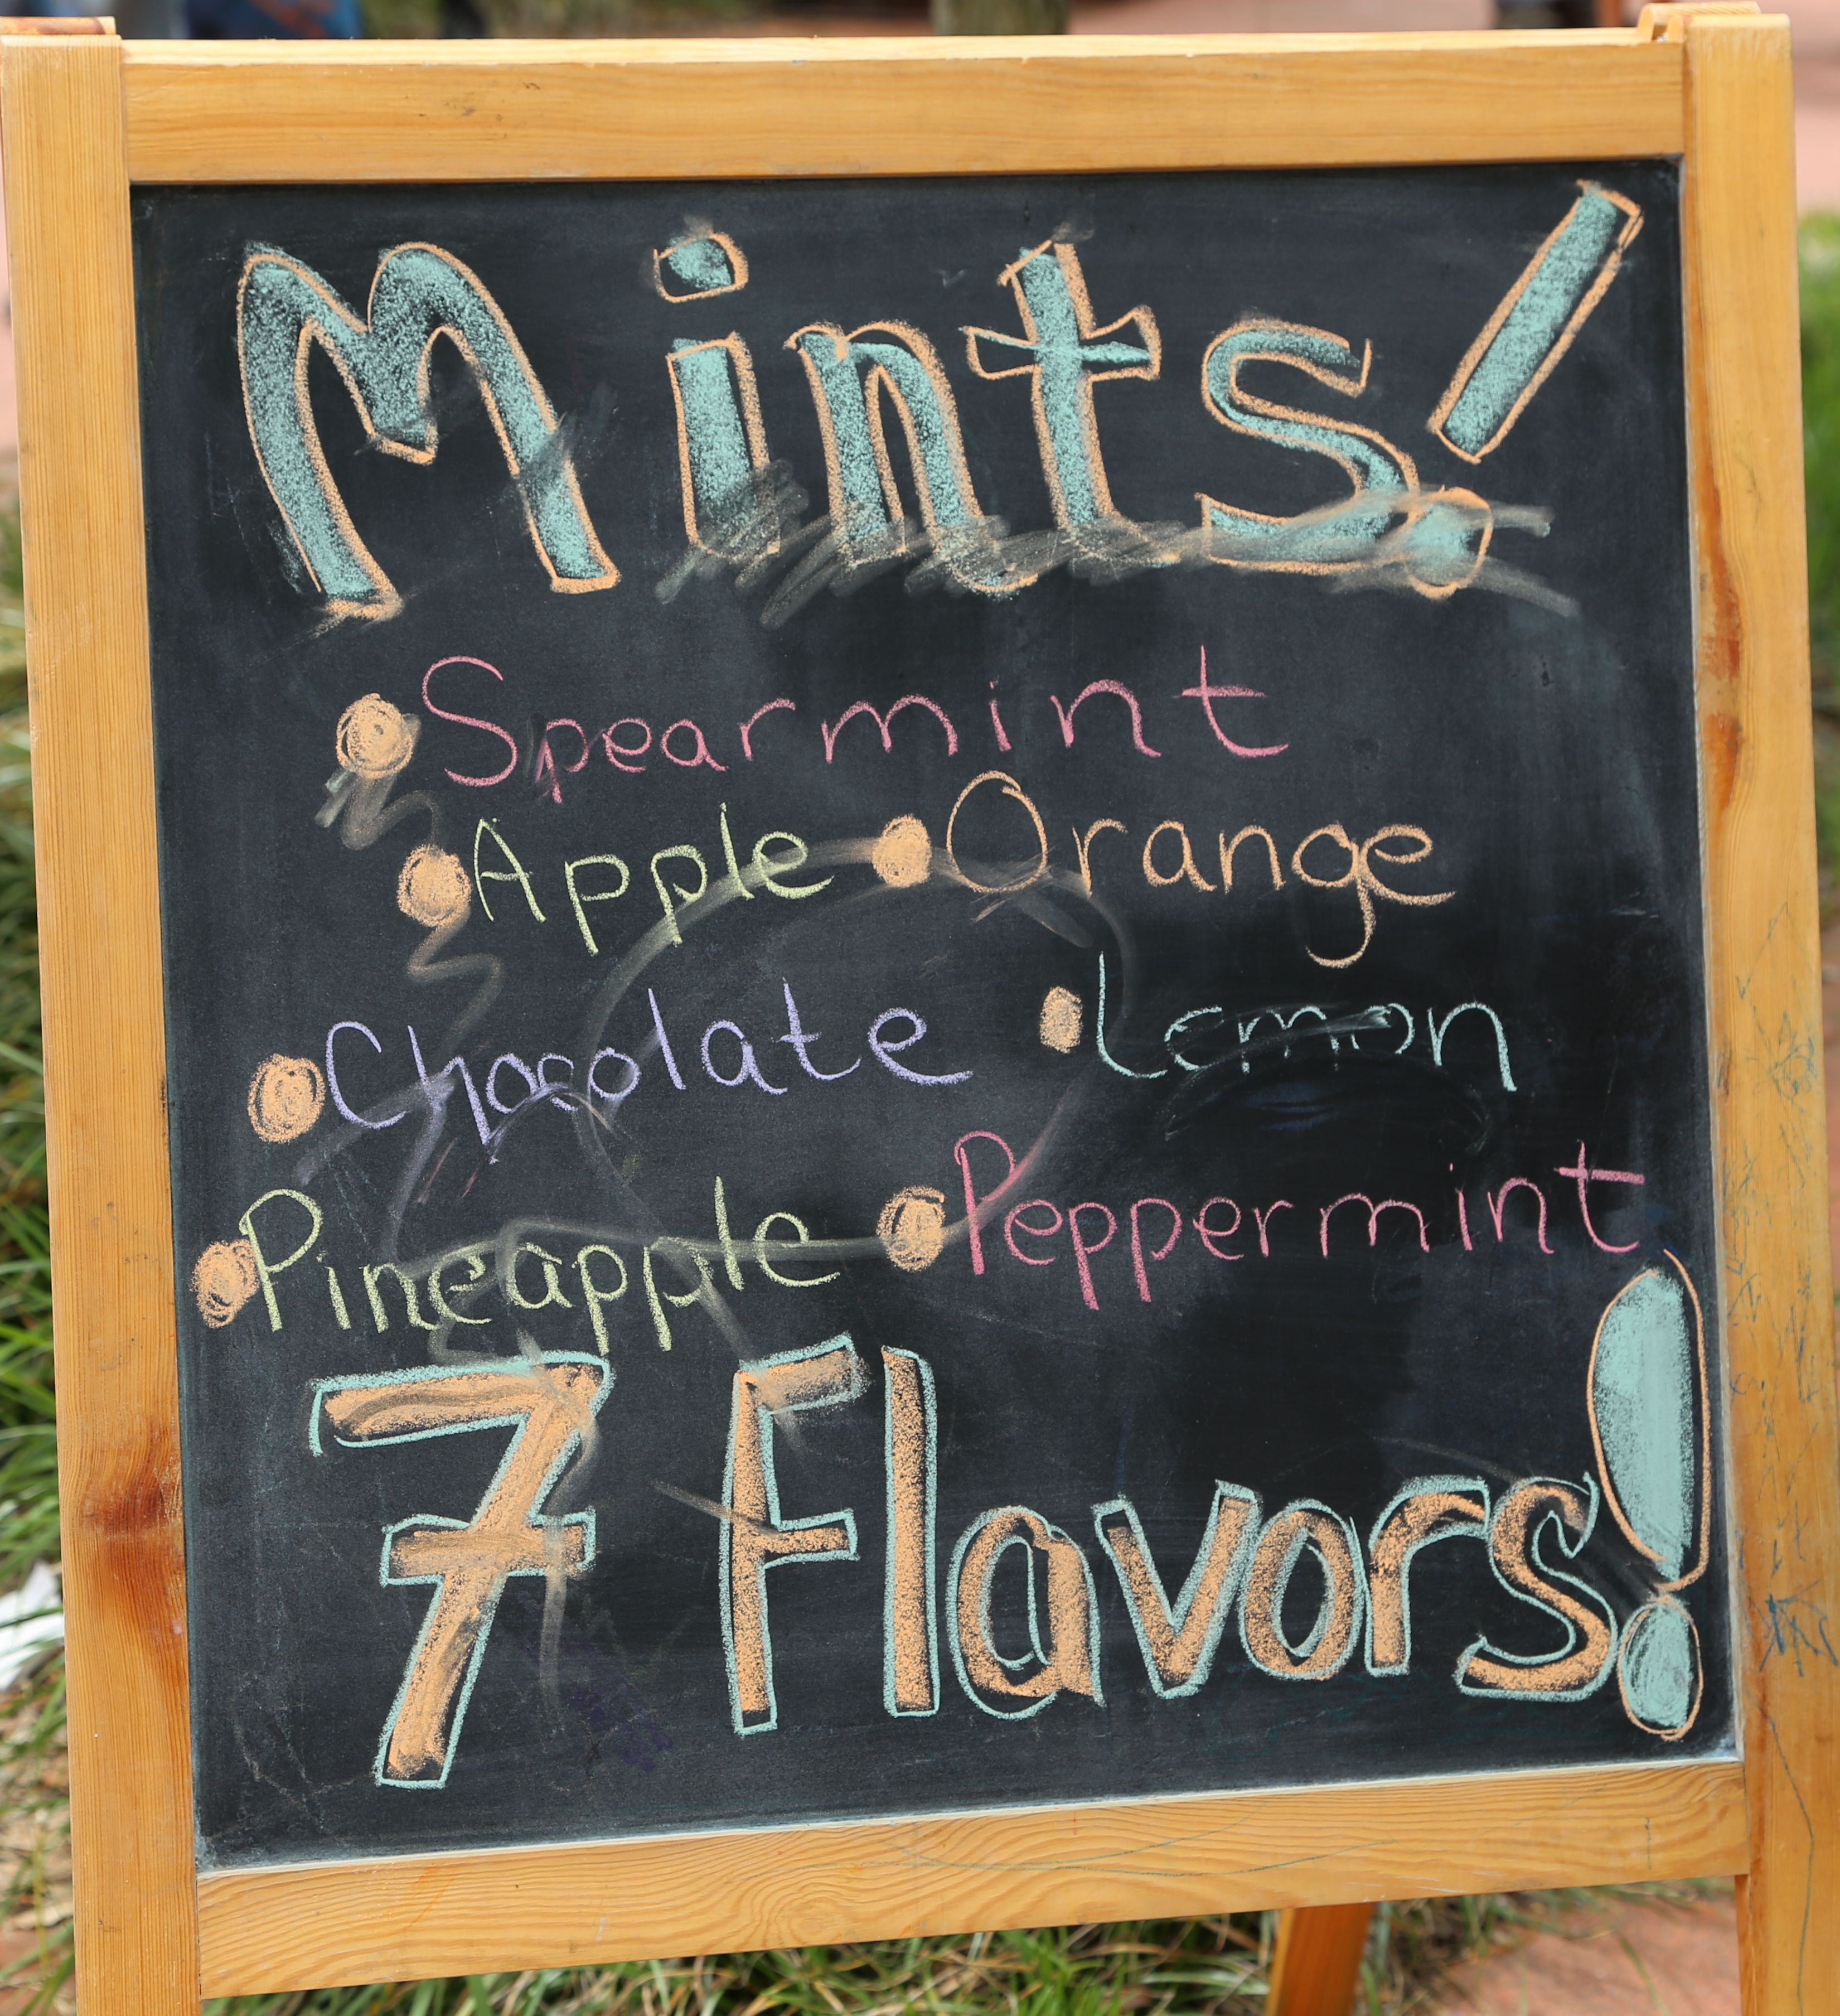 Mints!
• Spearmint
• Apple • Orange
• Chocolate • Lemon
• Pineapple • Peppermint
7 Flavors!